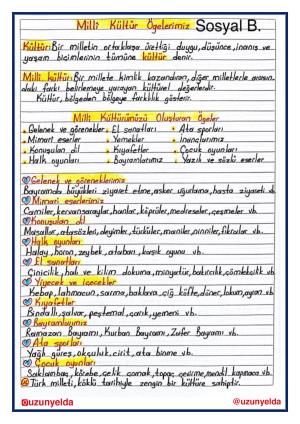 Milli Kültür Ögelerimiz Sosyal B.
Kültür: Bir milletin ortaklaşa ürettiği duygu, düşünce, inanış ve
yaşam biçimlerinin tümüne kültür denir.
Milli kültür: Bir millete kimlik kazandıran, diğer milletlerle arasın-
daki farkı belirlemeye yarayan kültürel değerlerdir.
Kültür, bölgeden bölgeye farklılık gösterir.
Milli Kültürümüzü Oluşturan Ögeler
• Gelenek ve görenekler • El sanatları • Ata sporları
• Mimari eserler • Yemekler • İnançlarımız
• Konuşulan dil • Kıyafetler • Çocuk oyunları
• Halk oyunları • Bayramlarımız • Yazılı ve sözlü eserler
Gelenek ve göreneklerimiz
Bayramda büyükleri ziyaret etme, asker uğurlama, hasta ziyareti vb.
Mimari eserlerimiz
Camiler, kervansaraylar, hanlar, köprüler, medreseler, çeşmeler vb.
Konuşulan dil
Masallar, atasözleri, deyimler, türküler, maniler, ninniler, fıkralar vb.
Halk oyunları
Halay, horon, zeybek, atabarı, kaşık oyunu vb.
El sanatları
Çinicilik, halı ve kilim dokuma, minyatür, bakırcılık, çömlekçilik vb.
Yiyecek ve içecekler
Kebap, lahmacun, sarma, baklava, çiğ köfte, döner, lokum, ayran vb.
Kıyafetler
Bindallı, şalvar, peştemal, çarık, yemeni vb.
Bayramlarımız
Ramazan Bayramı, Kurban Bayramı, Zafer Bayramı vb.
Ata sporları
Yağlı güreş, okçuluk, cirit, ata binme vb.
Çocuk oyunları
Saklambaç, körebe, çelik çomak, topaç çevirme, mendil kapmaca vb.
Türk milleti, köklü tarihiyle zengin bir kültüre sahiptir.
@uzunyelda @uzunyelda